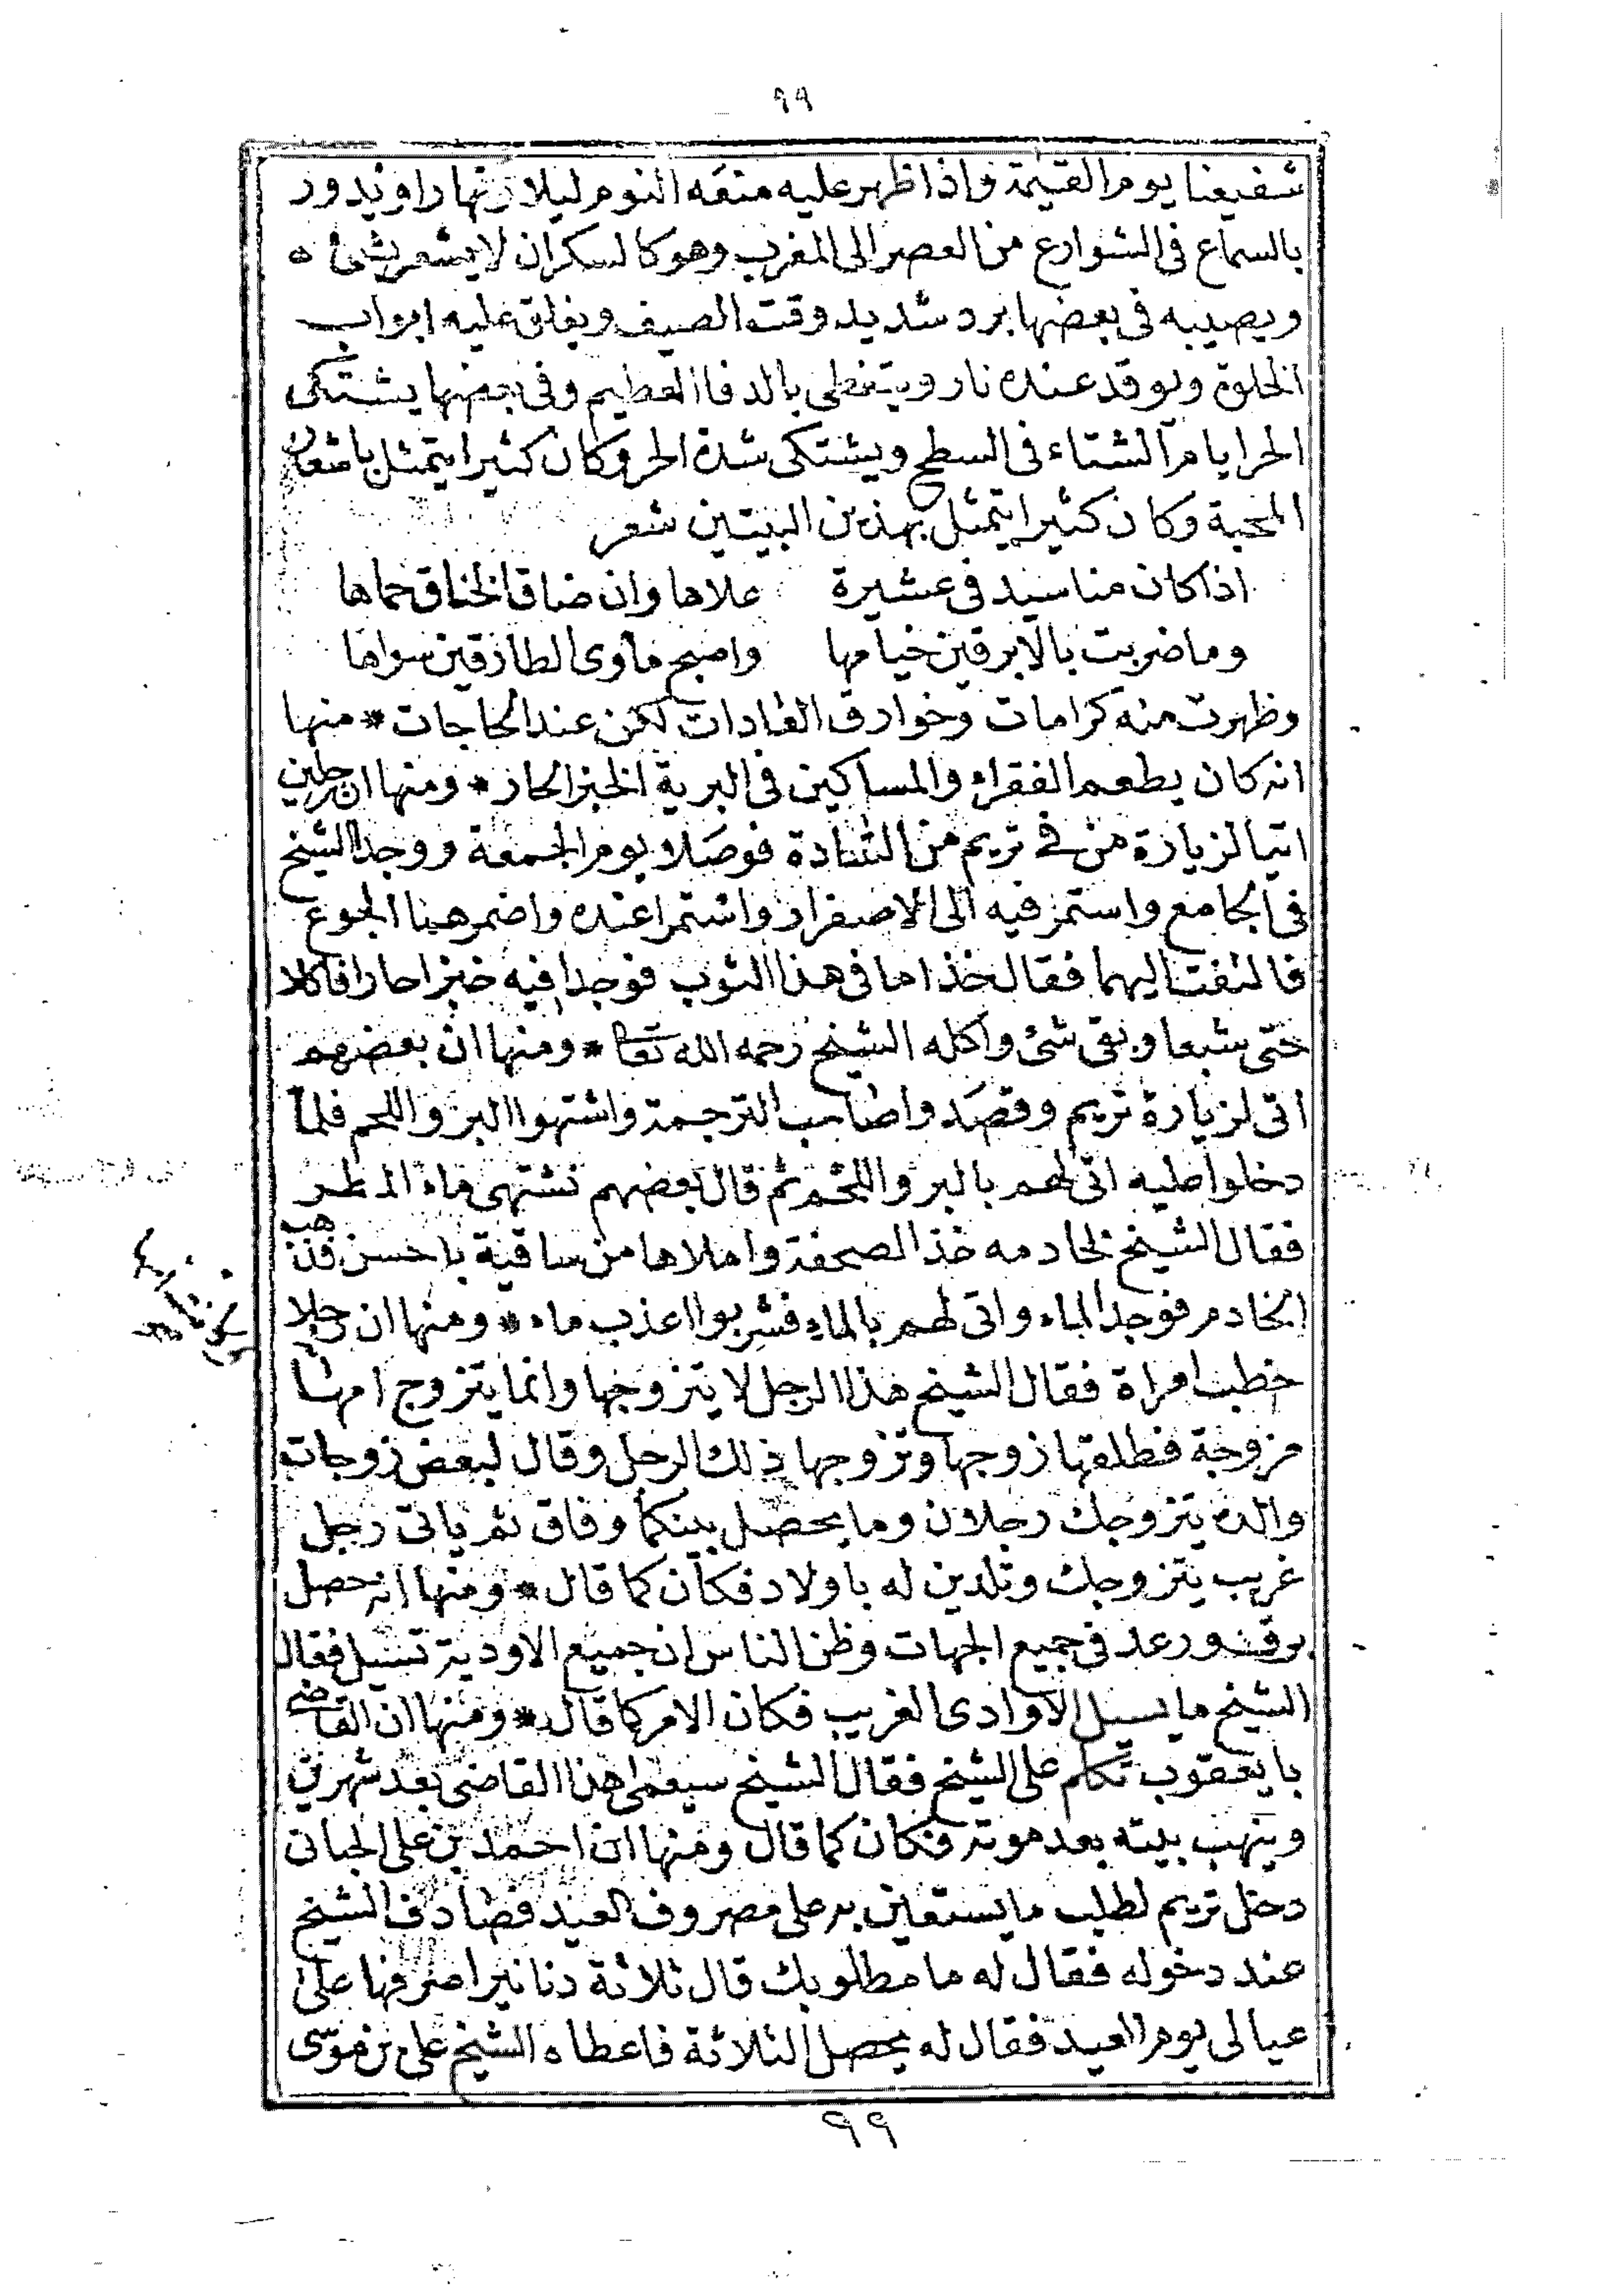 ٩٩
شفيعنا يوم القيمة واذا ظهر عليه منعه النوم ليلا ونهارا ويدور
بالسماع فى الشوارع من العصر الى المغرب وهو كالسكران لا يشعر بشئ ٥
ويصيبه فى بعضها برد شديد وقت الصيف ويغلق عليه ابواب
الخلوة ويوقد عنده نار ويتغطى بالدفا العظيم وفى بعضها يشتكى
الحر ايام الشتاء فى السطح ويشتكى شدة الحر وكان كثيرا يتمثل باشعار
المحبة وكان كثيرا يتمثل بهذين البيتين شعر
اذا كان منا سيد فى عشيرة علاها وان ضاق الخناق حماها
وما ضربت بالابرقين خيامها واصبح ماوى الطارقين سواها
وظهرت منه كرامات وخوارق العادات لكن عند الحاجات * منها
انه كان يطعم الفقراء والمساكين فى البرية الخبز الحار * ومنها ان رجلين
اتيا لزيارة من فى تريم من السادة فوصلا يوم الجمعة ووجدا الشيخ
فى الجامع واستمر فيه الى الاصفرار واستمرا عنده واضمرهما الجوع
فالتفت اليهما فقال خذا ما فى هذا الثوب فوجدا فيه خبزا حارا فاكلا
حتى شبعا وبقى شئ واكله الشيخ رحمه الله تعا * ومنها ان بعضهم
اتى لزيارة تريم وقصدوا صاحب الترجمة واشتهوا البر واللحم فلما
دخلوا عليه اتى لهم بالبر واللحم ثم قال بعضهم نشتهى ماء المطر
فقال الشيخ لخادمه خذ الصحفة واملاها من ساقية باحسن فذهب
الخادم فوجد الماء واتى لهم بالماء فشربوا اعذب ماء * ومنها ان رجلا
خطب امراة فقال الشيخ هذا الرجل لا يتزوجها وانما يتزوج امها
مزوجة فطلقها زوجها وتزوجها ذلك الرجل وقال لبعض زوجات
والده يتزوجك رجلان وما يحصل بينكما وفاق ثم ياتى رجل
غريب يتزوجك وتلدين له باولاد فكان كما قال * ومنها انه حصل
برق ورعد فى جميع الجهات وظن الناس ان جميع الاودية تسيل فقال
الشيخ ما يسيل الا وادى الغريب فكان الامر كما قال * ومنها ان القاضى
با يعقوب تكلم على الشيخ فقال الشيخ سيعمى هذا القاضى بعد شهرين
وينهب بيته بعد موته فكان كما قال ومنها ان احمد بن على الحبانى
دخل تريم لطلب ما يستعين به على مصروف العيد فصادف الشيخ
عند دخوله فقال له ما مطلوبك قال ثلاثة دنانير اصرفها على
عيالى يوم العيد فقال له يحصل الثلاثة فاعطاه الشيخ على بن موسى
٩٩